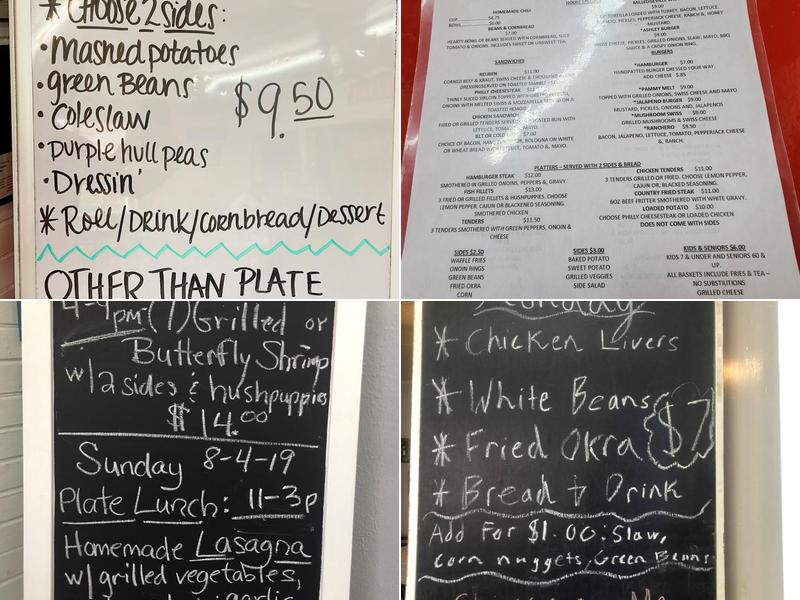 * Choose 2 sides:
• mashed potatoes
• green Beans
$9.50
• Coleslaw
• purple hull peas
• Dressin'
* Roll/Drink/cornbread/Dessert
OTHER THAN PLATE
HOMEMADE CHILI
CUP $4.75
BOWL $6.00
BEANS & CORNBREAD
$7.00
HEARTY BOWL OF BEANS SERVED WITH CORNBREAD, SLICED
TOMATO & ONIONS. INCLUDES SWEET OR UNSWEET TEA.
SANDWICHES
REUBEN $11.00
CORNED BEEF & KRAUT, SWISS CHEESE & THOUSAND ISLAND
DRESSING SERVED ON TOASTED MARBLE
PHILLY CHEESESTEAK
THINLY SLICED SIRLOIN TOPPED WITH
ONIONS WITH MELTED SWISS & MOZZARELLA ON A
TOASTED HOAGIE
CHICKEN SANDWICH
FRIED OR GRILLED TENDERS SERVED TOASTED BUN WITH
LETTUCE, TOMATO, MAYO.
BLT OR COLD $7.00
CHOICE OF BACON, HAM, BOLOGNA ON WHITE
OR WHEAT BREAD WITH LETTUCE, TOMATO, & MAYO.
$9.00
TORTILLA LOADED WITH TURKEY, BACON, LETTUCE,
PICKLES, PEPPERJACK CHEESE, RANCH & HONEY
MUSTARD.
*ASHLEY BURGER
$9.00
SWISS CHEESE, PICKLES, GRILLED ONIONS, SLAW, MAYO, BBQ
SAUCE & A CRISPY ONION RING.
BURGERS
*HAMBURGER $7.00
HANDPATTED BURGER DRESSED YOUR WAY.
ADD CHEESE $.85
*PAMMY MELT $9.00
TOPPED WITH GRILLED ONIONS, SWISS CHEESE AND MAYO
*JALAPENO BURGER $9.00
MUSTARD, PICKLES, ONIONS, AND JALAPENOS
*MUSHROOM SWISS $9.00
GRILLED MUSHROOMS & SWISS CHEESE
*RANCHERO $9.50
BACON, JALAPENO, LETTUCE, TOMATO, PEPPERJACK CHEESE
&, RANCH.
PLATTERS – SERVED WITH 2 SIDES & BREAD
HAMBURGER STEAK $12.00
SMOTHERED IN GRILLED ONIONS, PEPPERS &, GRAVY.
FISH FILLETS $13.00
3 FRIED OR GRILLED FILLETS & HUSHPUPPIES. CHOOSE
LEMON PEPPER, CAJUN OR BLACKENED SEASONING.
SMOTHERED CHICKEN
TENDERS $11.50
3 TENDERS SMOTHERED WITH GREEN PEPPERS, ONOIN &
CHEESE
CHICKEN TENDERS $11.00
3 TENDERS GRILLED OR FRIED. CHOOSE LEMON PEPPER,
CAJUN OR, BLACKED SEASONING.
COUNTRY FRIED STEAK $11.00
6OZ BEEF FRITTER SMOTHERED WITH WHITE GRAVY.
LOADED POTATO $10.00
CHOOSE PHILLY CHEESESTEAK OR LOADED CHICKEN
DOES NOT COME WITH SIDES
SIDES $2.50
WAFFLE FRIES
ONOIN RINGS
GREEN BEANS
FRIED OKRA
CORN
SIDES $3.00
BAKED POTATO
SWEET POTATO
GRILLED VEGGIES
SIDE SALAD
KIDS & SENIORS $6.00
KIDS 7 & UNDER AND SENIORS 60 &
UP.
ALL BASKETS INCLUDE FRIES & TEA –
NO SUBSTITUTIONS
GRILLED CHEESE
4-9pm (7) Grilled or
Butterfly Shrimp
w/2 sides & hushpuppies
$14.00
Sunday 8-4-19
Plate Lunch: 11-3p
Homemade Lasagna
w/ grilled vegetables,
garlic
* Chicken Livers
* White Beans
* Fried Okra $7
* Bread & Drink
Add For $1.00: Slaw,
corn nuggets, Green Beans